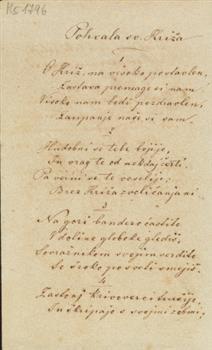 Ks 1796
Pohvala sv. Križa
1
O Križ, na visoko postavlen,
Zastava premage si nam
Visoko nam bodi pozdravlen,
Zaupanje naši si sam.
2
Hudobni se tebe bojijo,
In vrag te od nekdaj
Pa verni se te veselijo
Brez Križa zveličanja ni
3
Na gori bandero častito
V doline globoke glediš,
Sovražnikom svojim srdito
Se široko posvoli smejiš.
4
Zastonj krivoverci
In škripajo s svojimi zobmi,